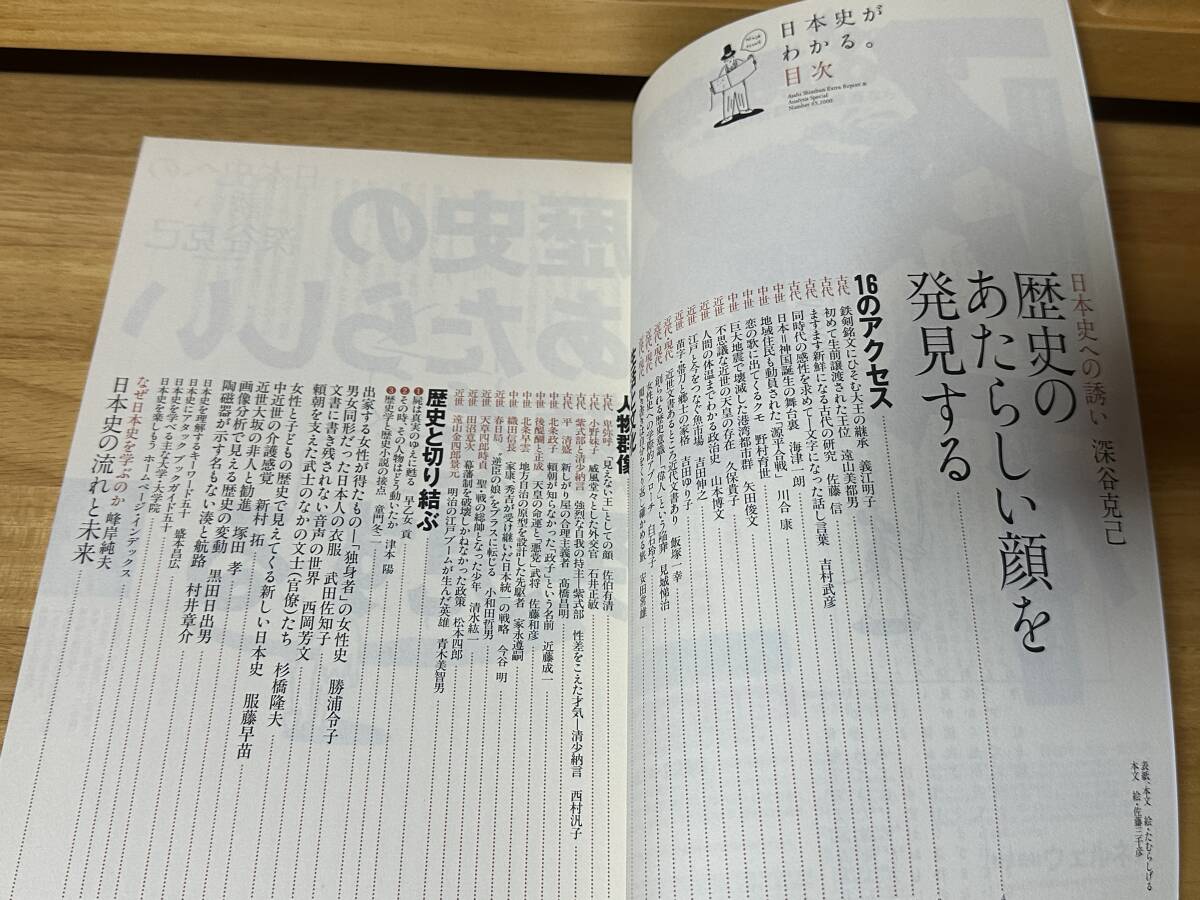 日本史が
わかる。
目次
Asahi Shimbun Extra Report &
Analysis Special
Number 63, 2000
日本史への誘い 深谷克己
歴史の
あたらしい顔を
発見する
16のアクセス
古代 鉄剣銘文にひそむ大王の継承 義江明子
古代 初めて生前譲渡された王位 遠山美都男
古代 ますます新鮮になる古代の研究 佐藤 信
古代 同時代の感性を求めてー文字になった話し言葉 吉村武彦
中世 日本=神国誕生の舞台裏 海津一朗
中世 地域住民も動員された「源平合戦」 川合 康
中世 恋の歌に出てくるクモ 野村育世
中世 巨大地震で壊滅した港湾都市群 矢田俊文
近世 不思議な近世の天皇の存在 久保貴子
近世 人間の体温までわかる政治史 山本博文
近世 江戸と今をつなぐ魚市場 吉田伸之
近世 苗字・帯刀と郷士の家格 吉田ゆり子
近代・現代 近世文書あるところ近代文書あり 飯塚一幸
近代・現代 創られる歴史意識「偉人」という瑠簿 見城悌治
近代・現代 女性史への学際的アプローチ 白石玲子
人物群像
古代 卑弥呼 「見えない王」としての顔 佐伯有清
古代 小野妹子 威風堂々とした外交官 石井正敏
古代 紫式部と清少納言 強烈な自我の持主―紫式部 性差をこえた才気―清少納言 西村汎子
古代 平 清盛 新しがり屋の合理主義者 髙橋昌明
中世 北条政子 頼朝が知らなかった「政子」という名前 近藤成一
中世 後醍醐と正成 天皇の命運と「悪党」武将 佐藤和彦
中世 北条早雲 地方自治の原型を設計した先駆者 家永遵嗣
中世 織田信長 家康、秀吉が受け継いだ日本統一の戦略 今谷 明
近世 春日局 “逆臣の娘”をプラスに転じる 小和田哲男
近世 天草四郎時貞 聖戦の総帥となった少年 清水紘一
近世 田沼意次 幕藩制を破壊しかねなかった政策 松本四郎
近世 遠山金四郎景元 明治の江戸ブームが生んだ英雄 青木美智男
歴史と切り結ぶ
❶屍は真実のゆえに甦る 早乙女 貢
❷その時、その人物はどう動いたか 津本 陽
❸歴史学と歴史小説の接点 童門冬二
出家する女性が得たもの―「独身者」の女性史 勝浦令子
男女同形だった日本人の衣服 武田佐知子
文書に書き残されない音声の世界 西岡芳文
頼朝を支えた武士のなかの文士(官僚)たち 杉橋隆夫
女性と子どもの歴史で見えてくる新しい日本史 服藤早苗
中近世の介護感覚 新村 拓
近世大坂の非人と勧進 塚田 孝
画像分析で見える歴史の変動 黒田日出男
陶磁器が示す名もない湊と航路 村井章介
日本史を理解するキーワード五十 盛本昌広
日本史にアタック ブックガイド五十
日本史を学べる主な大学・大学院
日本史を楽しもう ホームページ・インデックス
なぜ日本史を学ぶのか 峰岸純夫
日本史の流れと未来
表紙、本文 絵・たむらしげる
本文 絵・佐藤三千彦